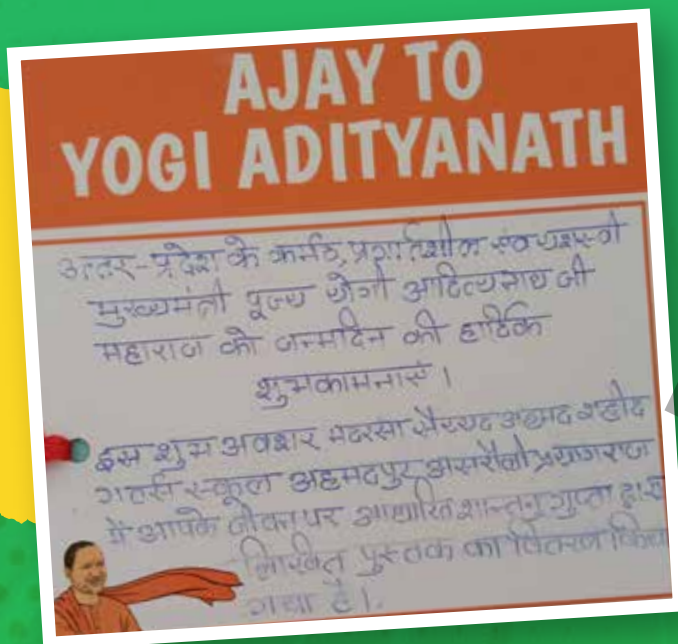 AJAY TO
YOGI ADITYANATH
उत्तर-प्रदेश के कर्मठ, प्रगतिशील एवं यशस्वी
मुख्यमंत्री पूज्य योगी आदित्यनाथ जी
महाराज को जन्मदिन की हार्दिक
शुभकामनाएं ।
इस शुभ अवशर मदरसा सैय्यद अहमद शहीद
गर्ल्स स्कूल अहमदपुर असरौली प्रयागराज
में आपके जीवन पर आधारित शान्तनु गुप्ता द्वारा
लिखित पुस्तक का वितरण किया
गया है।.